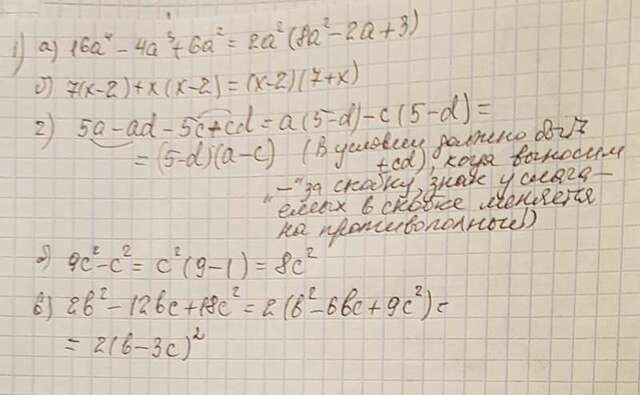 1) а) 16a⁴ - 4a³ + 6a² = 2a²(8a² - 2a + 3)
б) 7(x-2) + x(x-2) = (x-2)(7+x)
2) 5a - ad - 5c + cd = a(5-d) - c(5-d) =
= (5-d)(a-c) (В условии должно быть
+cd), когда выносим
"-" за скобку, знак у слага-
емых в скобке меняется
на противоположный)
б) 9c² - c² = c²(9-1) = 8c²
в) 2b² - 12bc + 18c² = 2(b² - 6bc + 9c²) =
= 2(b-3c)²